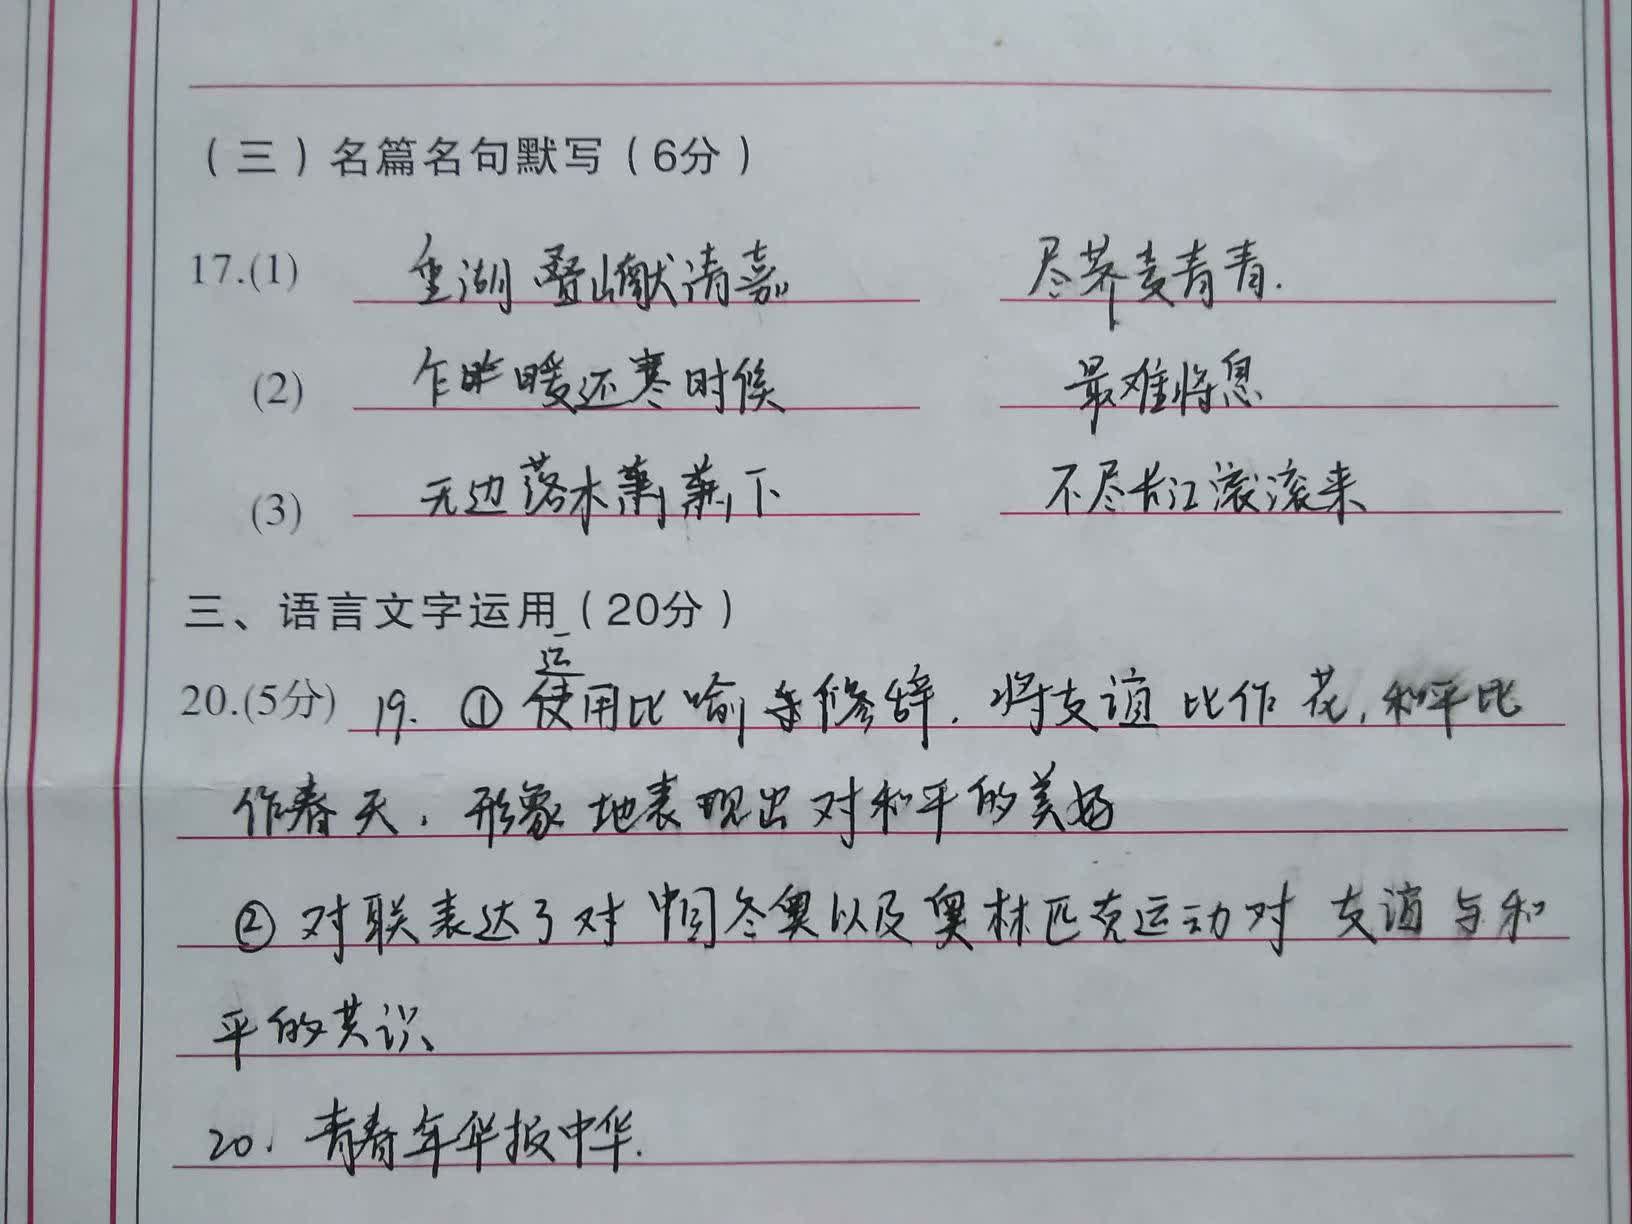 （三）名篇名句默写（6分）
17.(1) 重湖叠山献清嘉 尽荠麦青青.
(2) 乍昨暖还寒时候 最难将息
(3) 无边落木萧萧下 不尽长江滚滚来
三、语言文字运用（20分）
运
20.(5分) 19. ① 使用比喻修辞. 将友谊比作花, 和平比
作春天. 形象地表现出对和平的美好
② 对联表达了对中国冬奥以及奥林匹克运动对友谊与和
平的共识、
20. 青春年华报中华.